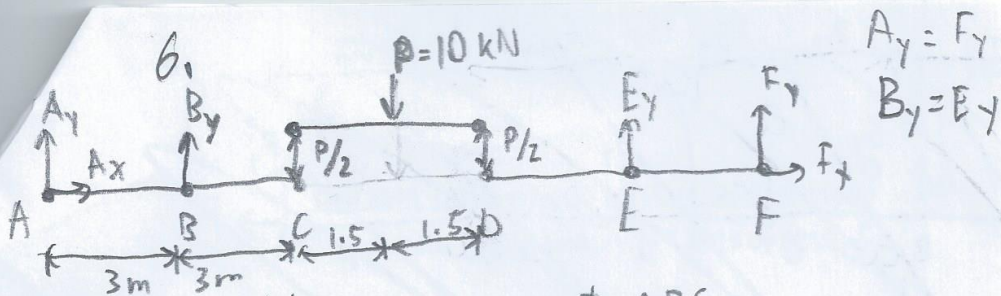 6.
P=10 kN
Ay = Fy
By = Ey
Ay
By
Ey
Fy
Ax
P/2
P/2
Fx
A
B
C
1.5
1.5
D
E
F
3m
3m